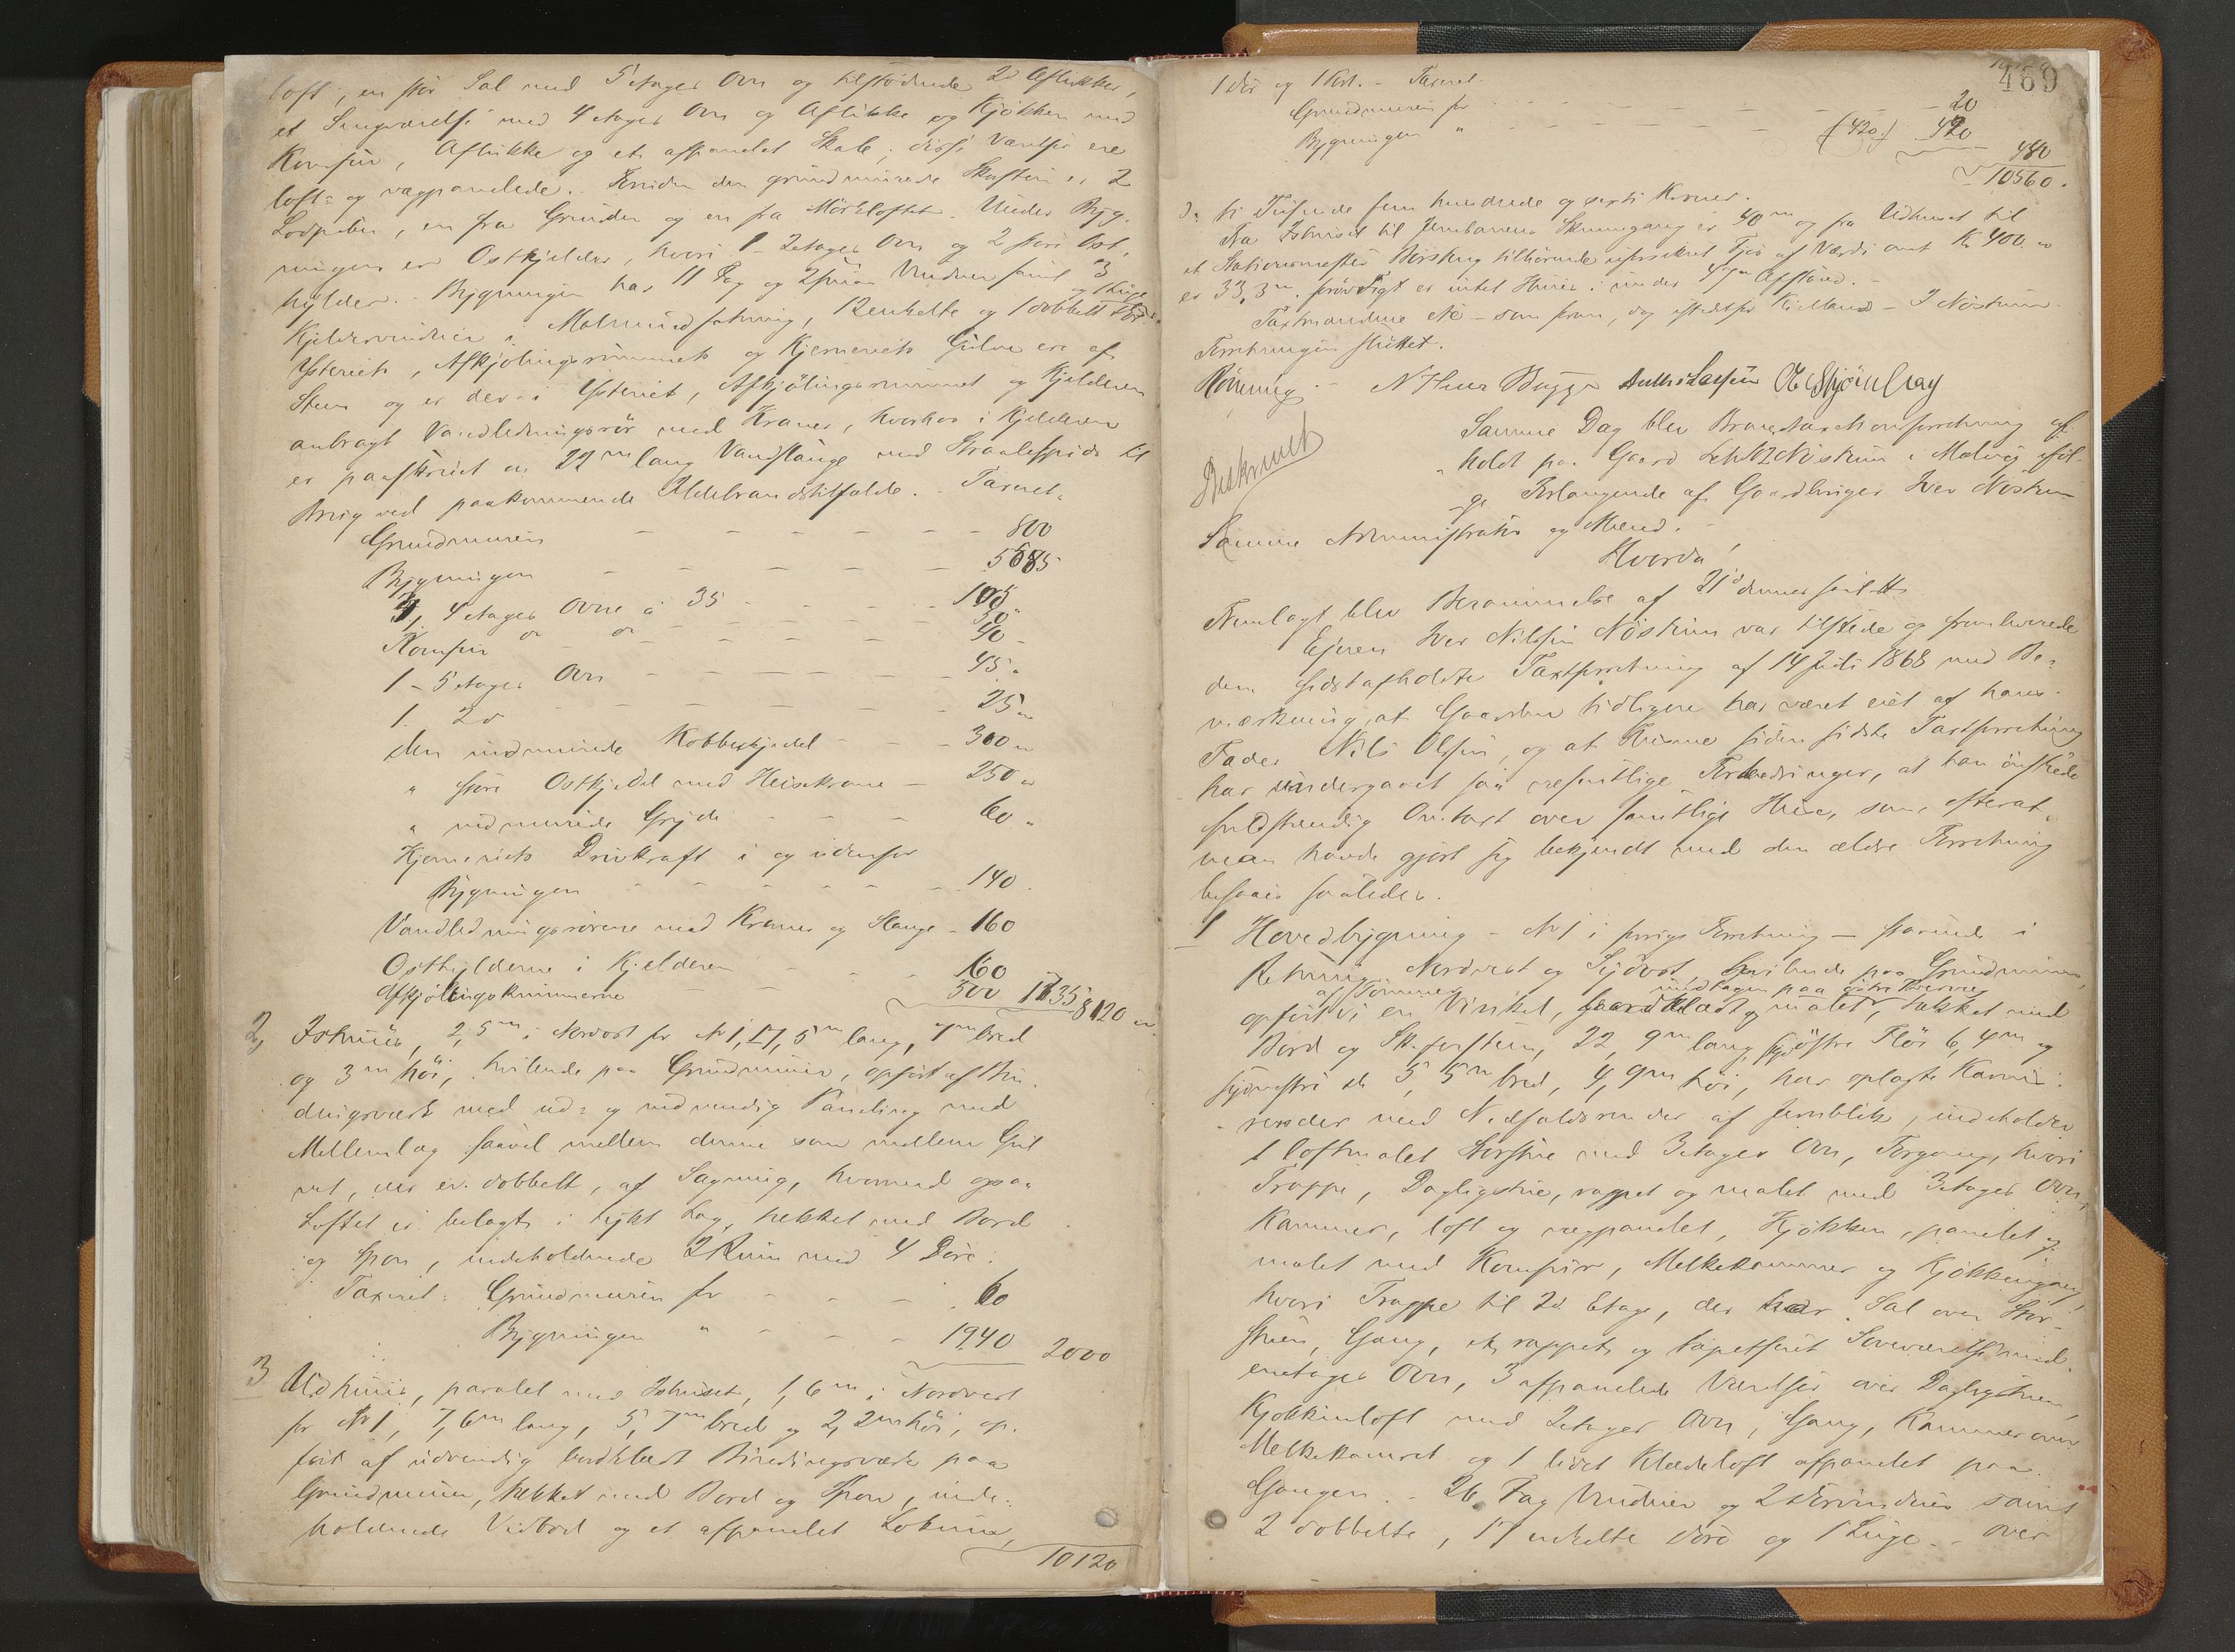 loft, en stor Sal med 5 etages Ovn og tilstödende 2 Aflukker,
et Sengeværelse med 4 etages Ovn og Aflukke og Kjökken med
Komfur, Aflukke og et afpanelet Skab; disse Værelser ere
loft- og vægpanelede. Foruden den grundmurede Skorsten er 2
Lodpiber, en fra Grunden og en fra Mörkloftet. Under Byg-
ningen er Ostkjelder, hvori 1 2 etages Ovn og 2 store Ost-
hylder. Bygningen har 11 Fag og 2 smaa Vinduer samt 3
Kjeldervinduer i Malmindfatning, 12 enkelte og 1 dobbelt Dör
og 1 Luge
Ysteriets, Afkjölingsrummets og Kjerneriets Gulve ere af
Steen og er der i Ysteriet, Afkjölingsrummet og Kjelderen
anbragt Vandledningsrör med Kraner, hvorhos i Kjelderen
er paaskruet en 22 m lang Vandslange med Straalespids til
Brug ved paakommende Ildebrandstilfælde. Taxeret:
Grundmuren 800
Bygningen 5585
3, 4 etages Ovne a 35 105
Komfur 40
1 - 5 etages Ovn 45
1. 2 do 25
den indmurede Kobberkjedel 300
" store Ostkjedel med Heisekrane 250
" indmurede Gryde 60
Kjerneriets Drivkraft i og udenfor
Bygningen 140
Vandledningsrörene med Kraner og Slange - 160
Osthylderne i Kjelderen 160
Afkjölingskummerne 300 1735 8120
2, Ishuus, 2,5 m i Nordost for No 1, 17,5 m lang, 7 m bred
og 3 m höi, hvilende paa Grundmuur, opfört af Bin-
dingsværk med ud- og indvendig Paneling med
Mellemlag saavel mellem denne som mellem Gul-
vet, der er dobbelt, af Sagmug, hvormed ogsaa
Loftet er belagt i tykt Lag, tekket med Bord
og Spon, indeholdende 2 Rum med 4 Döre.
Taxeret: Grundmuren for 60
Bygningen " 1940 2000
3 Udhuus, paralel med Ishuset, 1,6 m i Nordvest
for No 1, 7,6 m lang, 5,7 m bred og 2,2 m höi, op-
fört af udvendig bordklædt Bindingsværk paa
Grundmuur, tekket med Bord og Spon, inde-
holdende Vedbod og et afpanelet Lokum,
10120
469
1 Dör og 1 Kvt. - Taxeret
Grundmuren for 20
Bygningen " (420) 420
480
10560.
ti Tusinde fem hundrede og sexti Kroner.
Fra Ishuset til Jernbanens Skinnegang er 40 m og fra Udhuset til
et Stationsmester Börseng tilhörende uassureret Fjös af Værdi omt. Kr 400
er 33,3 m. forövrigt er intet Huus i under Afstand. -
Taxtmændene etc - som foran, dog istedetfor Kielland - I Nöstum
Forretningen sluttet.
Rönning N Huus Bugge Anths Larssen O E Skjönhaug
Beskrevet
Samme Dag blev Brandtaxtionsforretning af-
holdt paa Gaard Nöstum i Malvig iföl-
ge Forlangende af Gaardbruger Iver Nöstum
Samme Administrator og Mænd. -
Hvorda!
Fremlagt blev Berammelse af 21de dennes sidstl.
Ejeren Iver Nilssen Nöstum var tilstede og fremleverede
den sidst afholdte Taxtforretning af 14 Juli 1868 med Be-
mærkning, at Gaarden tidligere har været eiet af hans
Fader Nils Olsen, og at Husene siden sidste Taxtforretning
har undergaaet saa væsentlige Forbedringer, at han önskede
fuldstændig Omtaxt over samtlige Huse, som, efterat
man havde gjort sig bekjendt med den ældre Forretning
besaaes saaledes.
1 Hovedbygning - No 1 i forrige Forretning - staaende i
Retning Nordvest og Sydost, hvilende paa Grundmuur,
af Tömmer undtagen paa östre Tvervæg
opfört i en Vinkel, bordklædt og malet, tækket med
Bord og Skifersteen, 22,9 m lang, sydöstre Flöi 6,4 m og
sydvestre do 5,5 m bred, 4,9 m höi, har oplagte Karnis-
render med Nedfaldsrender af Jernblik, indeholder
1 loftmalet Storstue med 3 etages Ovn, Forgang, hvori
Trappe, Dagligstue, rappet og malet med 3 etages Ovn,
Kammer, loft og vægpanelet, Kjökken, panelet og
malet med Komfur, Melkekammer og Kjökkengang,
hvori Trappe til 2d Etage, der har Sal over Stor-
stuen, Gang, et rappet og tapetseret Soveværelse med
enetages Ovn, 3 afpanelede Værelser over Dagligstuen,
Kjökkenloft med 2 etages Ovn, Gang, Kammer over
Melkekamret og 1 lidet Klædeloft afpanelet paa
Gangen. - 26 Fag Vinduer og 2 Dörvinduer samt
2 dobbelte, 17 enkelte Döre og 1 Luge. - over